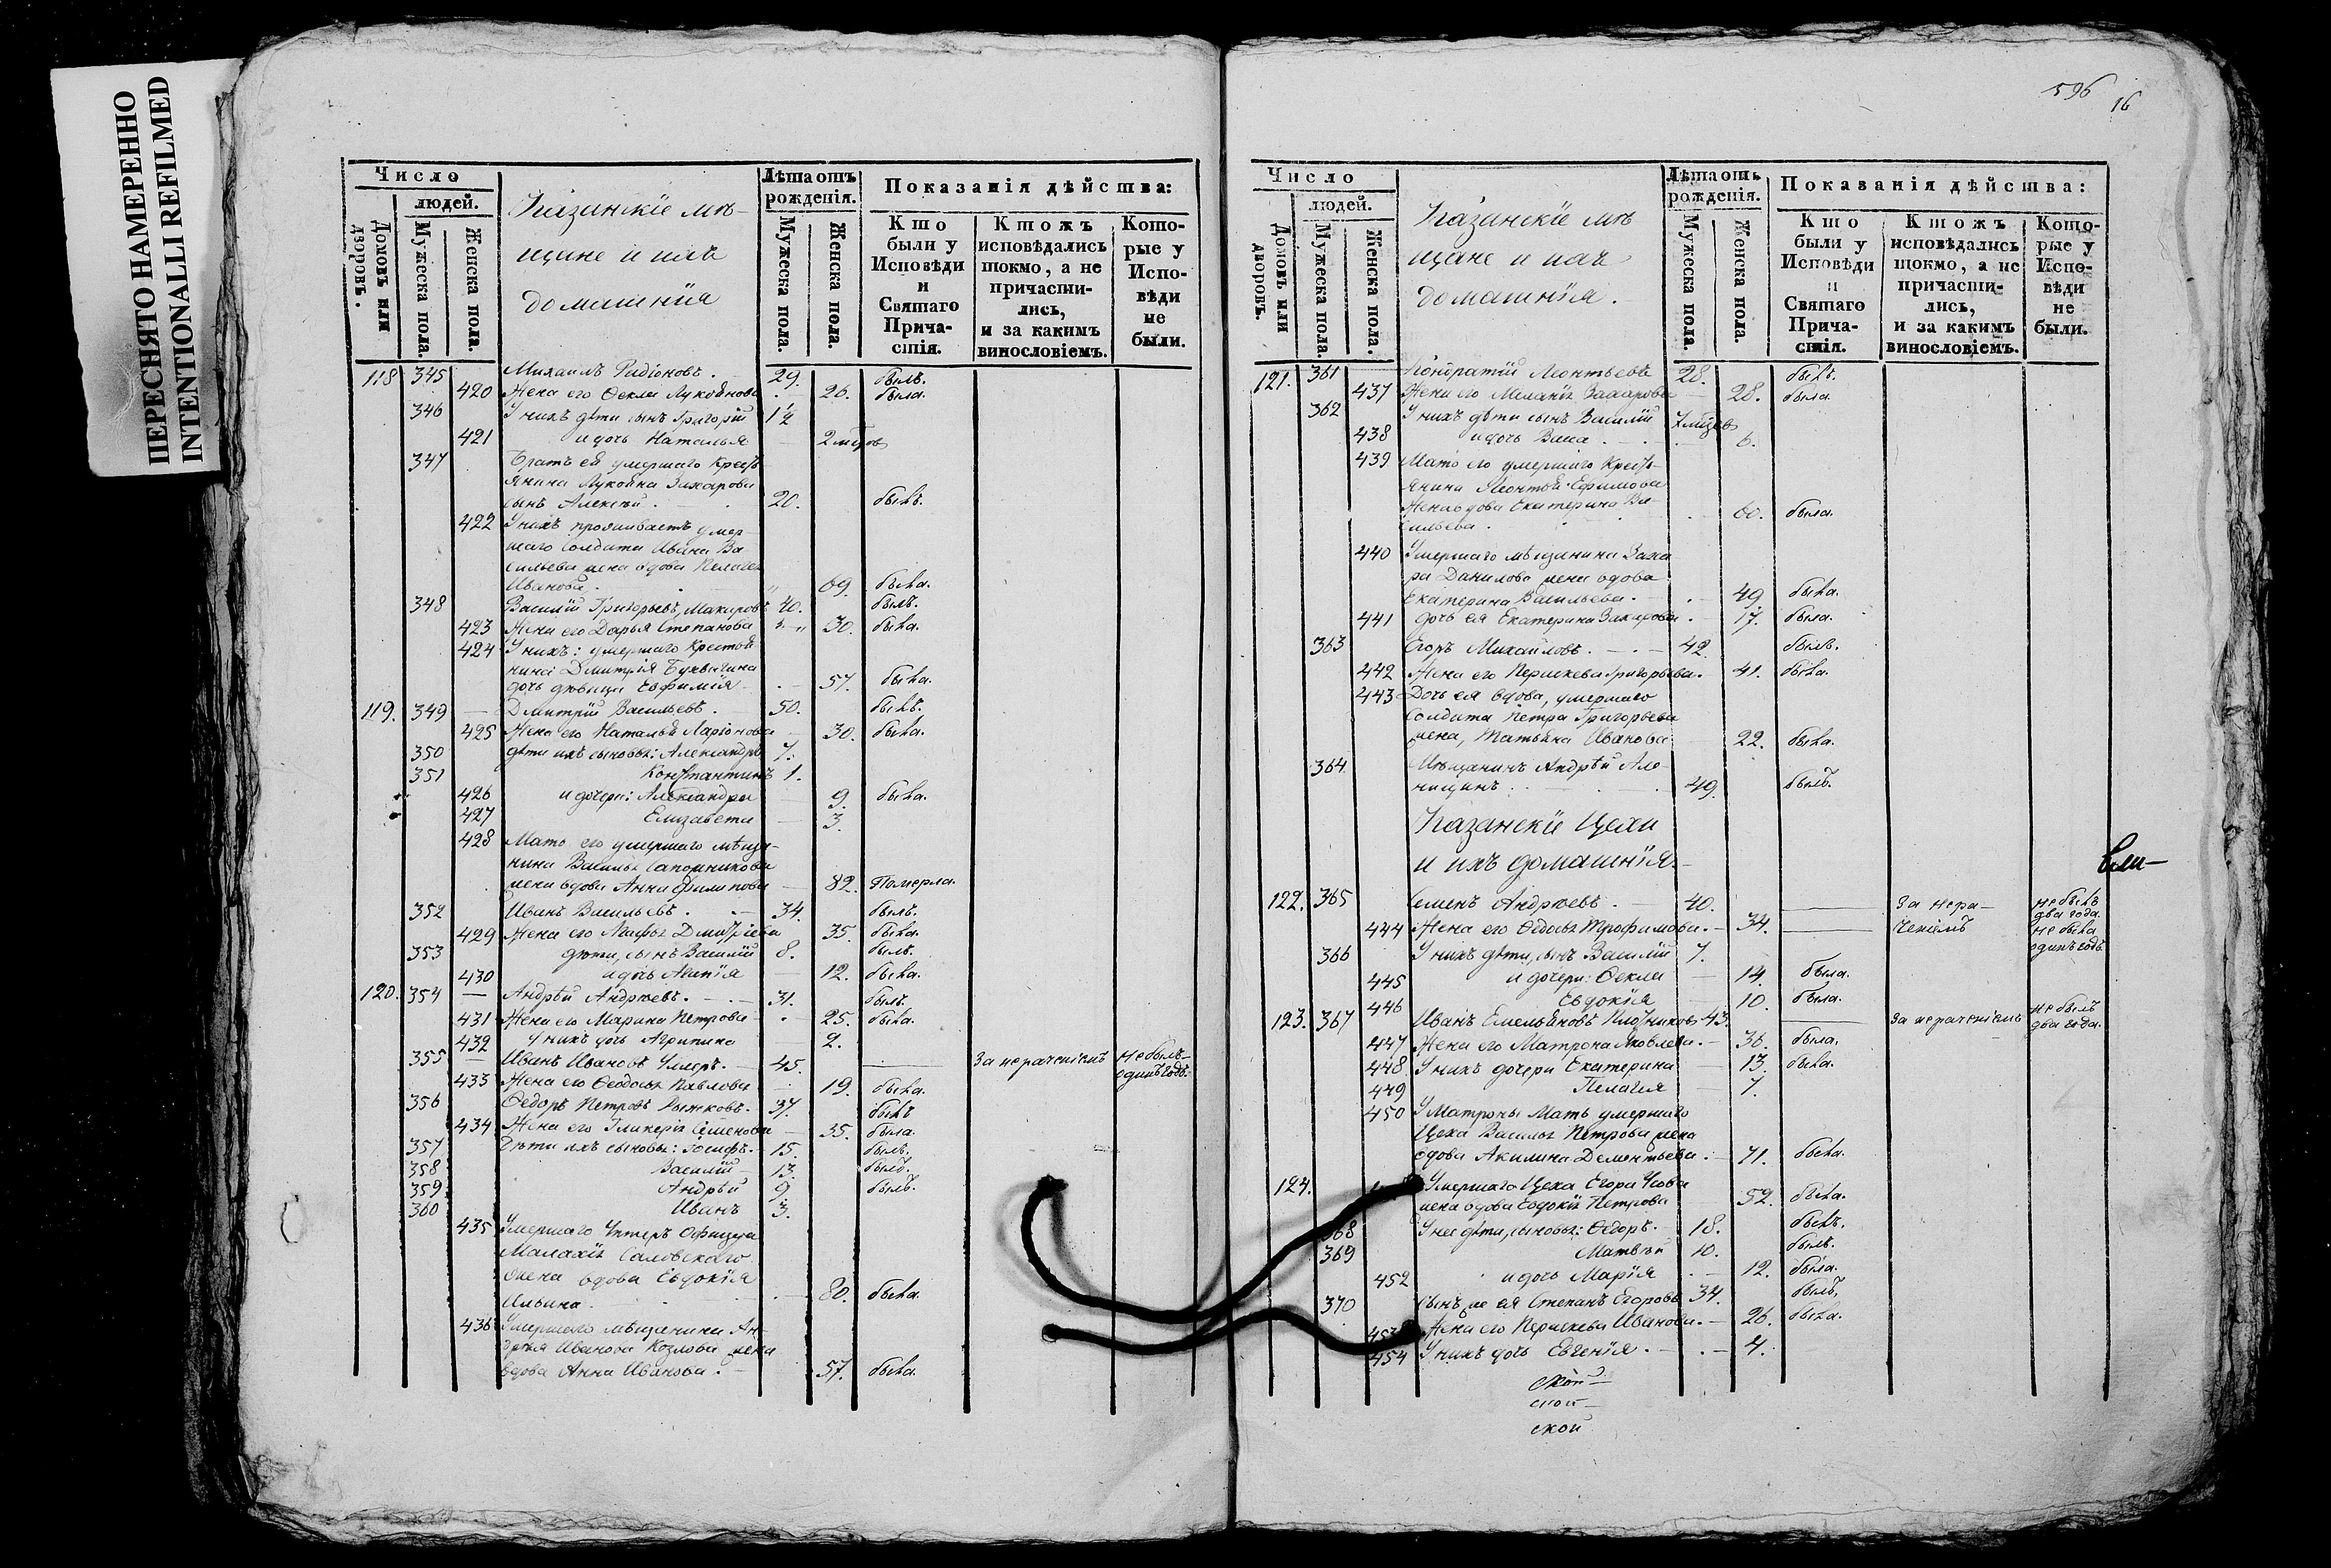 ПЕРЕСНЯТО НАМЕРЕННО
INTENTIONALLI REFILMED
Число
людей.
Домовъ или дворовъ.
Мужеска пола.
Женска пола.
Казанскіе мѣ-
щане и ихъ
домашнія
Лѣта отъ рожденія.
Мужеска пола.
Женска пола.
Показанія дѣйства:
Кто были у Исповѣди и Святаго Причастія.
Ктожъ исповѣдались токмо, а не причастились, и за какимъ винословіемъ.
Которые у Исповѣди не были.
118 345 Михаилъ Родіоновъ. 29. былъ.
420 Жена его Ѳекла Лукоянова 26. была.
346 У нихъ дѣти сынъ Григорій 1½
421 и дочь Наталья 2
347 Братъ ея умершаго Крестъ-
янина Лукояна Захарова
сынъ Алексѣй 20. былъ.
422 У нихъ проживаетъ умер-
шаго Солдата Ивана Ва-
сильева жена вдова Пелагея
Иванова. 69. была.
348 Василій Григорьевъ Макаровъ 40. былъ.
423 Жена его Дарья Степанова 30. была.
424 У нихъ: умершаго Крестья-
нина Дмитрія
дочь дѣвица Евфимія 57. была.
119. 349 Дмитрій Васильевъ. 50. былъ.
425 Жена его Наталья Ларіонова 30. была.
350 дѣти ихъ сыновья: Александръ 7.
351 Константинъ 1.
426 и дочери: Александра 9. была.
427 Елизавета 3.
428 Мать его умершаго мѣща-
нина Василья Сапожникова
жена вдова Анна Филипова 82. Померла.
352 Иванъ Васильевъ. 34. былъ.
429 Жена его Агафья Дмитріева 35. была.
353 дѣти, сынъ Василій 8. былъ.
430 и дочь 12. была.
120. 354 Андрѣй Андрѣевъ. 31. былъ.
431 Жена его Марина Петрова 25. была.
432 У нихъ дочь Агрипина 2.
355 Иванъ Ивановъ 45. За нераченіемъ не былъ одинъ годъ.
433 Жена его Ѳеодосья Павлова 19. была.
356 Ѳедоръ Петровъ Рыжковъ. 37. былъ
434 Жена его Гликерія Семенова 35. была.
357 Дѣти ихъ сыновья: Іосифъ. 15. былъ.
358 Василій 13. былъ.
359 Андрѣй 9. былъ.
360 Иванъ 3.
435 Умершаго Унтеръ Офицера
Малахія
жена вдова Евдокія
Ильина 80. была.
436 Умершаго мѣщанина Ан-
дрѣя Иванова Козлова жена
вдова Анна Иванова. 57. была.
596
16
Число
людей.
Домовъ или дворовъ.
Мужеска пола.
Женска пола.
Казанскіе мѣ
щане и ихъ
домашнія.
Лѣта отъ рожденія.
Мужеска пола.
Женска пола.
Показанія дѣйства:
Кто были у Исповѣди и Святаго Причастія.
Ктожъ исповѣдались токмо, а не причастились, и за какимъ винословіемъ.
Которые у Исповѣди не были.
121. 361 Кондратій Леонтьевъ 28. былъ.
437 Жена его Меланія Захарова 28. была
362 У нихъ дѣти сынъ Василій 7
438 и дочь 6.
439 Мать его умершаго Кресть-
янина Леонтья Ефимова
Жена вдова Екатерина Ва-
сильева. 60. была.
440 Умершаго мѣщанина Заха
ра Данилова жена вдова
Екатерина Васильева. 49 была.
441 дочь ея Екатерина Захарова 17. была.
363 Егоръ Михайловъ. 42. былъ.
442 Жена его Пераскева Григорьева. 41. была.
443 Дочь ея вдова, умершаго
Солдата Петра Григорьева
жена, Татьяна Иванова 22. была.
364. Мѣщанинъ Андрѣй
49. былъ.
Казанскіе Цехи
и ихъ домашнія.
122. 365 Семенъ Андрѣевъ. 40. За нера- не былъ два года.
444 Жена его Ѳедосья Трофимова. 34. ченіемъ не была одинъ годъ
366 У нихъ дѣти, сынъ Василій 7.
445 и дочери: Ѳекла 14. была.
446 Евдокія 10. была.
123. 367 Иванъ Емельяновъ Плотниковъ 43. За нераченіемъ не былъ два года.
447 Жена его Матрона Яковлева. 36. была.
448 У нихъ дочери Екатерина 13. была.
449 Пелагея 7.
450 У Матроны Мать умершаго
Цеха Василья Петрова жена
вдова Акилина Дементьева. 71. была.
124. Умершаго Цеха Егора
жена вдова Евдокія Петрова 52. была.
368 У нея дѣти, сыновья: Ѳедоръ. 18. былъ.
369 Матвѣй 10. былъ.
452 и дочь Марія 12. была.
370 Сынъ же ея Степанъ Егоровъ 34. былъ,
453 Жена его Пераскева Иванова. 26. была.
454 У нихъ дочь Евгенія. 4.
ской
ской
ской